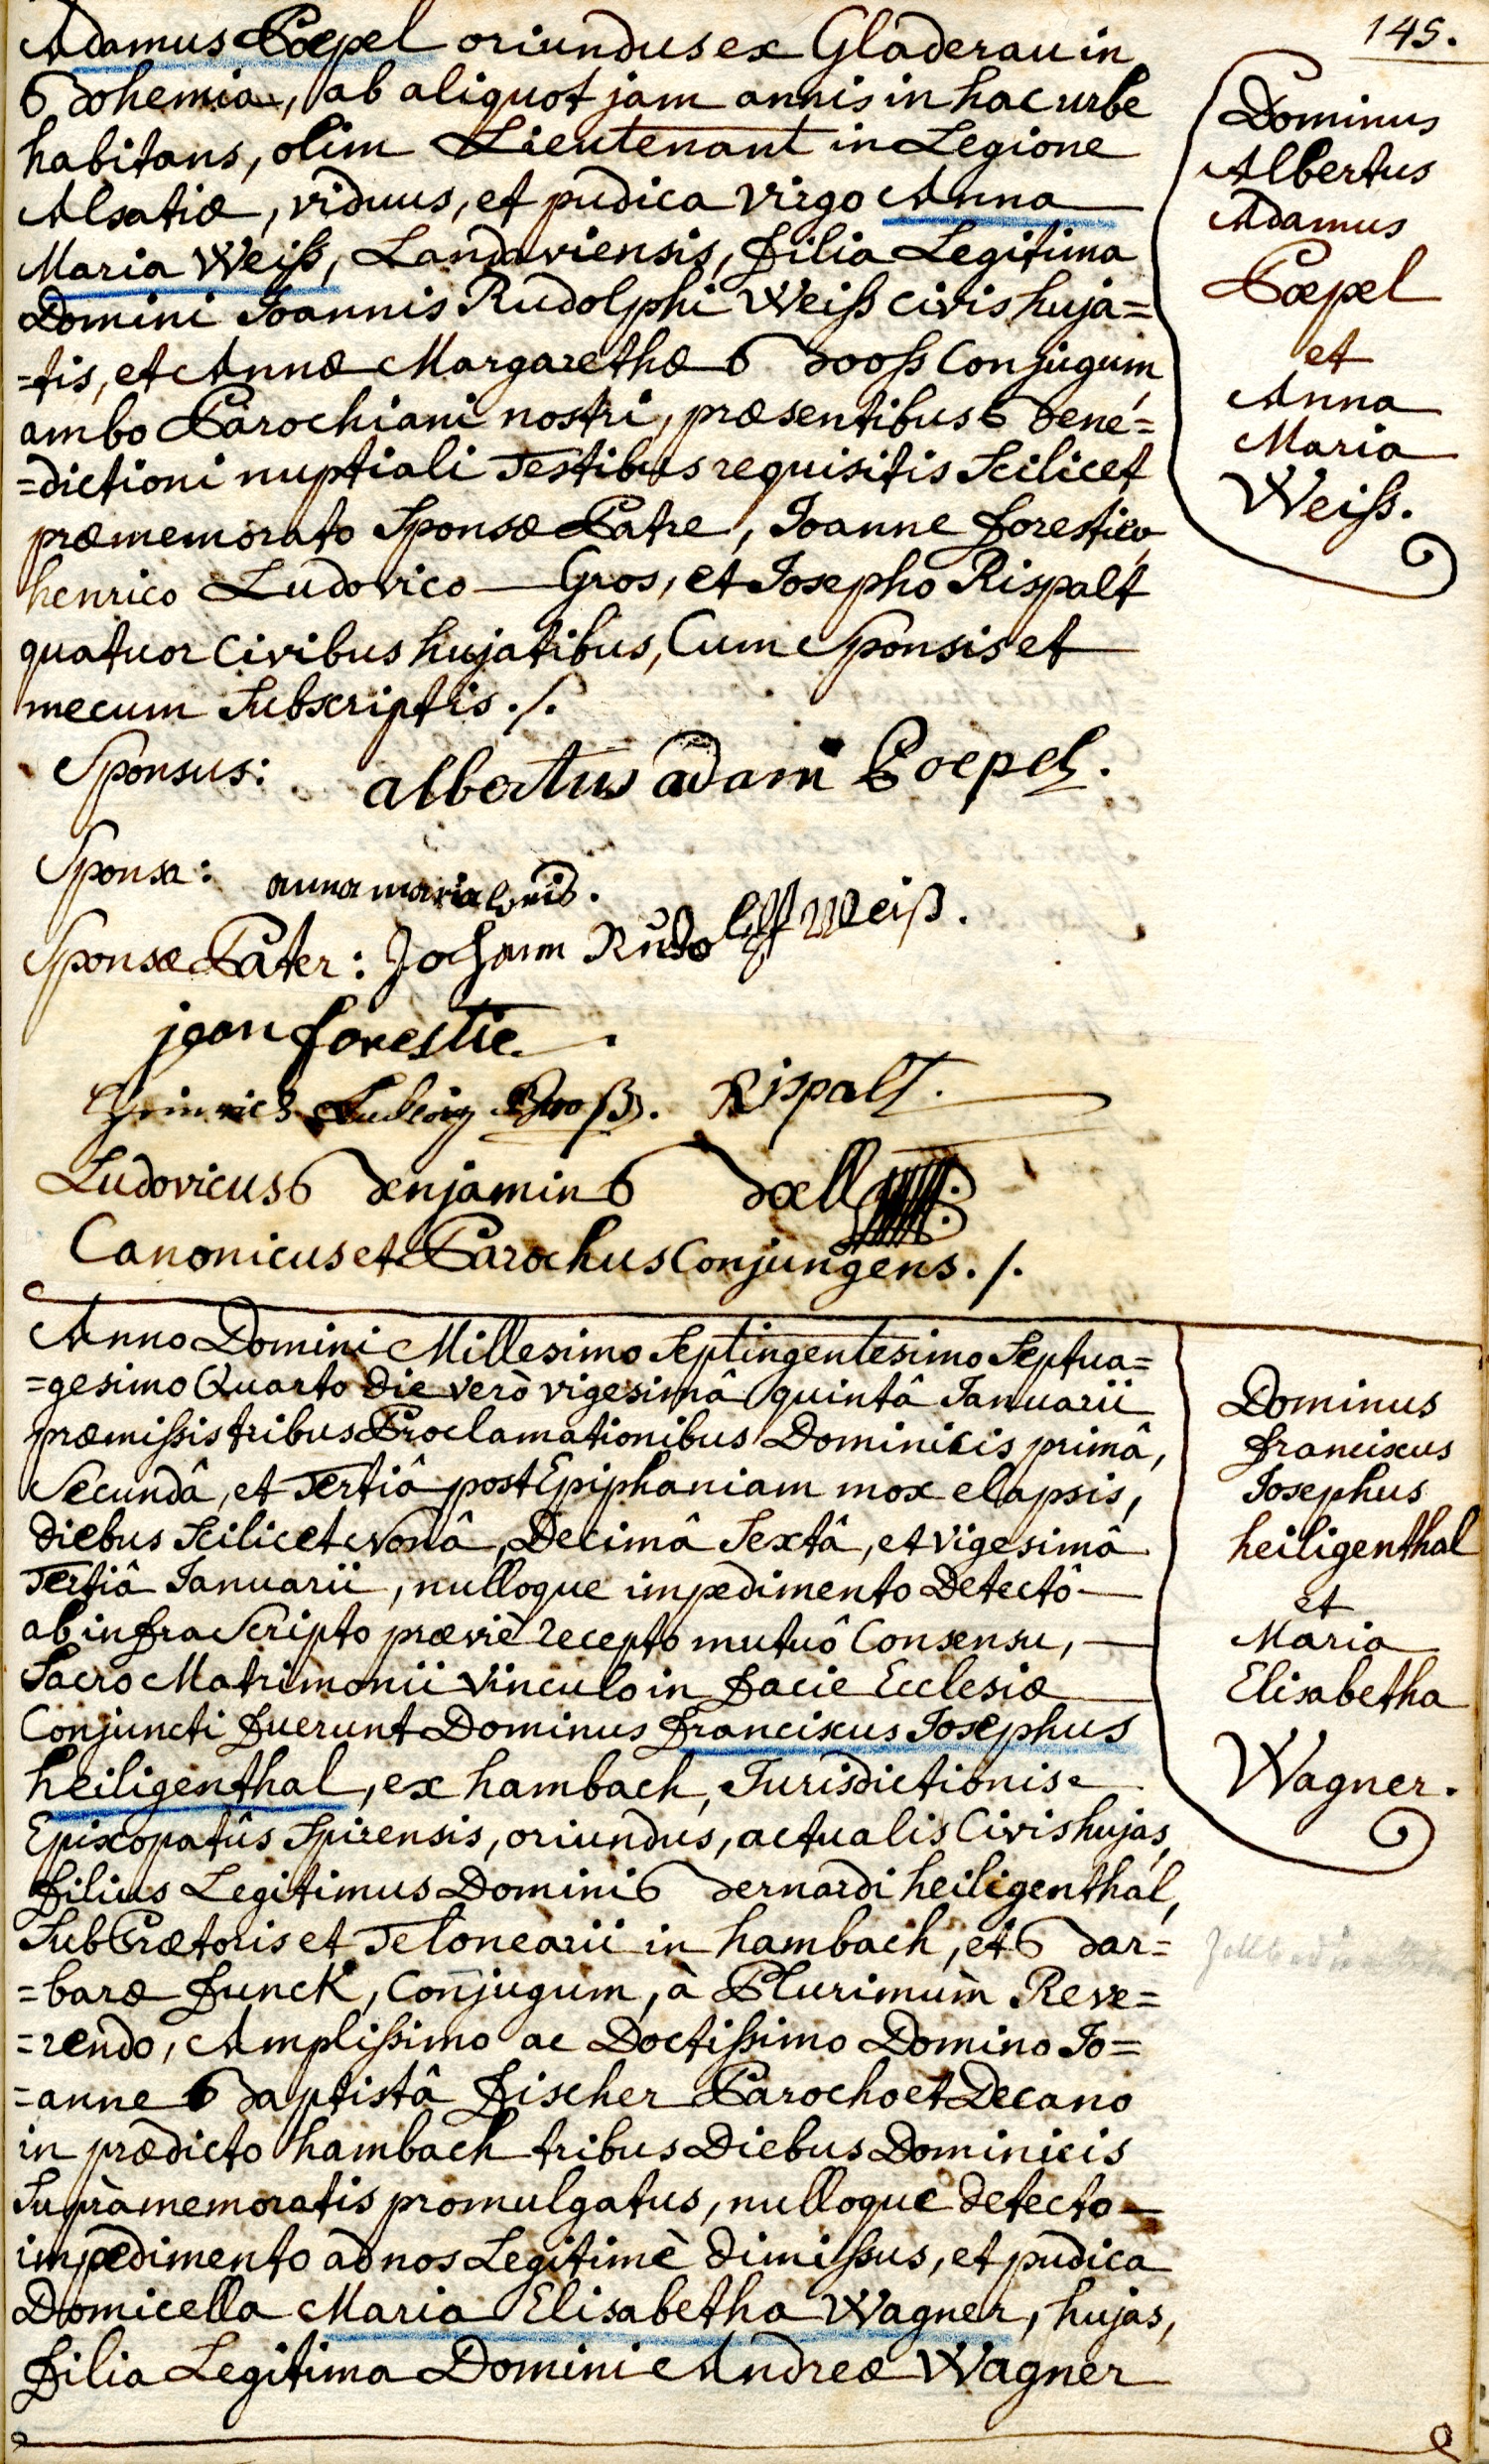 145.
Adamus Pœpel oriundus ex Gladerau in
Bohemia, ab aliquot jam annis in hac urbe
habitans, olim Lieutenant in Legione
Alsatiæ, viduus, et pudica virgo Anna
Maria Weiß, Landaviensis, filia Legitima
Domini Joannis Rudolphi Weiß civis huja=
=tis, et Annæ Margarethæ Booß Conjugum,
ambo Parochiani nostri, præsentibus Bene=
=dictioni nuptiali Testibus requisitis Scilicet
præmemorato Sponsæ Patre, Joanne forestier,
henrico Ludovico — Gros, et Josepho Rispalt
quatuor Civibus hujatibus, Cum Sponsis et
mecum Subscriptis ./.
Dominus
Albertus
Adamus
Pœpel
et
Anna
Maria
Weiß.
Sponsus: albertus adam Poepel.
Sponsa: anna maria weis.
Sponsæ Pater: Johann Rudolff Weiß.
jean forestie
Heinrich Ludwig Groß. Rispalt.
Ludovicus Benjamin Bœll
Canonicus et Parochus Conjungens ./.
Anno Domini Millesimo Septingentesimo Septua=
=gesimo Quarto die verò vigesimâ quintâ Januarii
præmissis tribus Proclamationibus Dominicis primâ,
Secundâ, et Tertiâ post Epiphaniam mox elapsis,
diebus Scilicet nonâ, Decimâ Sextâ, et vigesimâ
Tertiâ Januarii, nulloque impedimento Detectô —
ab infra Scripto præviè recepto mutuô Consensu, —
Sacro Matrimonii Vinculo in facie Ecclesiæ
Conjuncti fuerunt Dominus franciscus Josephus
heiligenthal, ex hambach, Jurisdictionis
Episcopatûs Spirensis, oriundus, actualis Civis hujas,
filius Legitimus Domini Bernardi heiligenthal,
SubPrætoris et Telonearii in hambach, et Bar=
=baræ funck, Conjugum, à Plurimùm Reve=
=rendo, Amplissimo ac Doctissimo Domino Jo=
=anne Baptistâ fischer Parocho et Decano
in prædicto hambach tribus Diebus Dominicis
Supràmemoratis promulgatus, nulloque detecto —
impedimento ad nos Legitimè dimissus, et pudica
Domicella Maria Elisabetha Wagner, hujas,
filia Legitima Domini Andreæ Wagner
Dominus
franciscus
Josephus
heiligenthal
et
Maria
Elisabetha
Wagner.